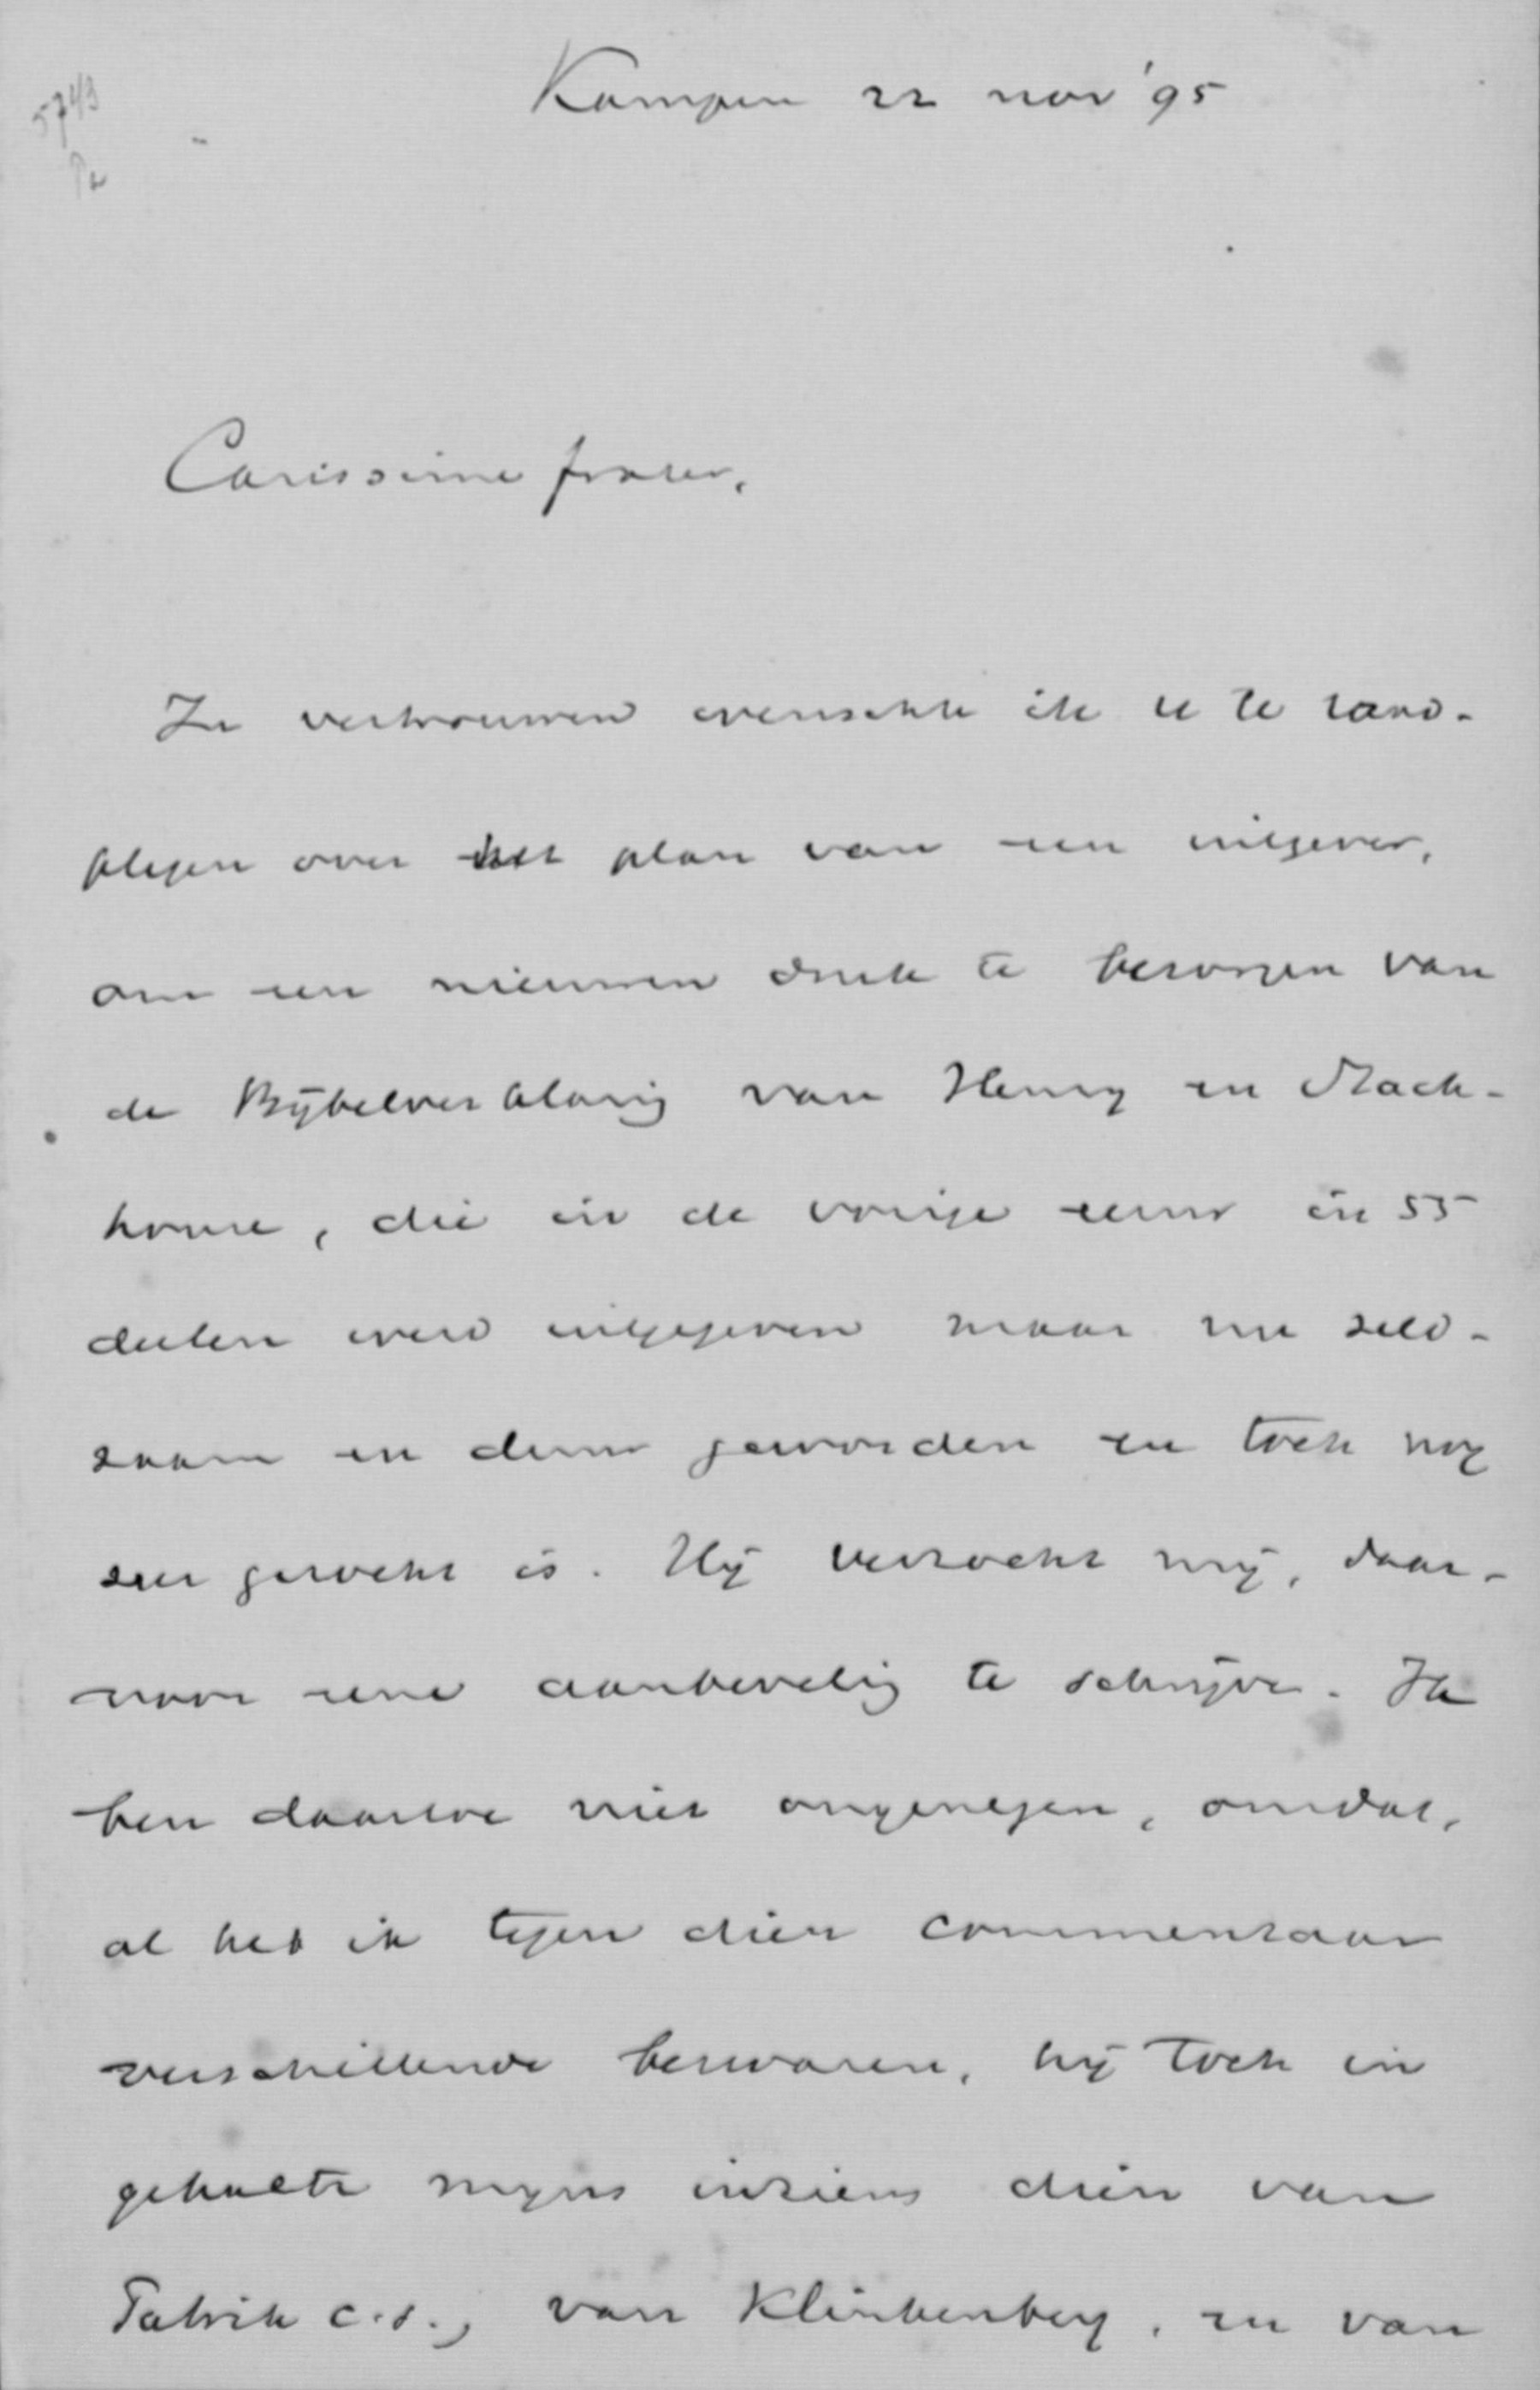 5743
Kampen 22 nov '95
Carissime frater,
In vertrouwen wenschte ik u te raad-
plegen over het plan van een uitgever,
om een nieuwen druk te bezorgen van
de Bijbelverklaring van Henry en Stack-
house, die in de vorige eeuw in 55
deelen werd uitgegeven maar nu zeld-
zaam en duur geworden en toch nog
zeer gezocht is. Hij verzocht mij, daar-
voor eene aanbeveling te schrijven. Ik
ben daartoe niet ongenegen, omdat,
al heb ik tegen dien commentaar
verschillende bezwaren, hij toch in
gehalte mijns inziens dien van
Patrik c.s., van Klinkenberg, en van